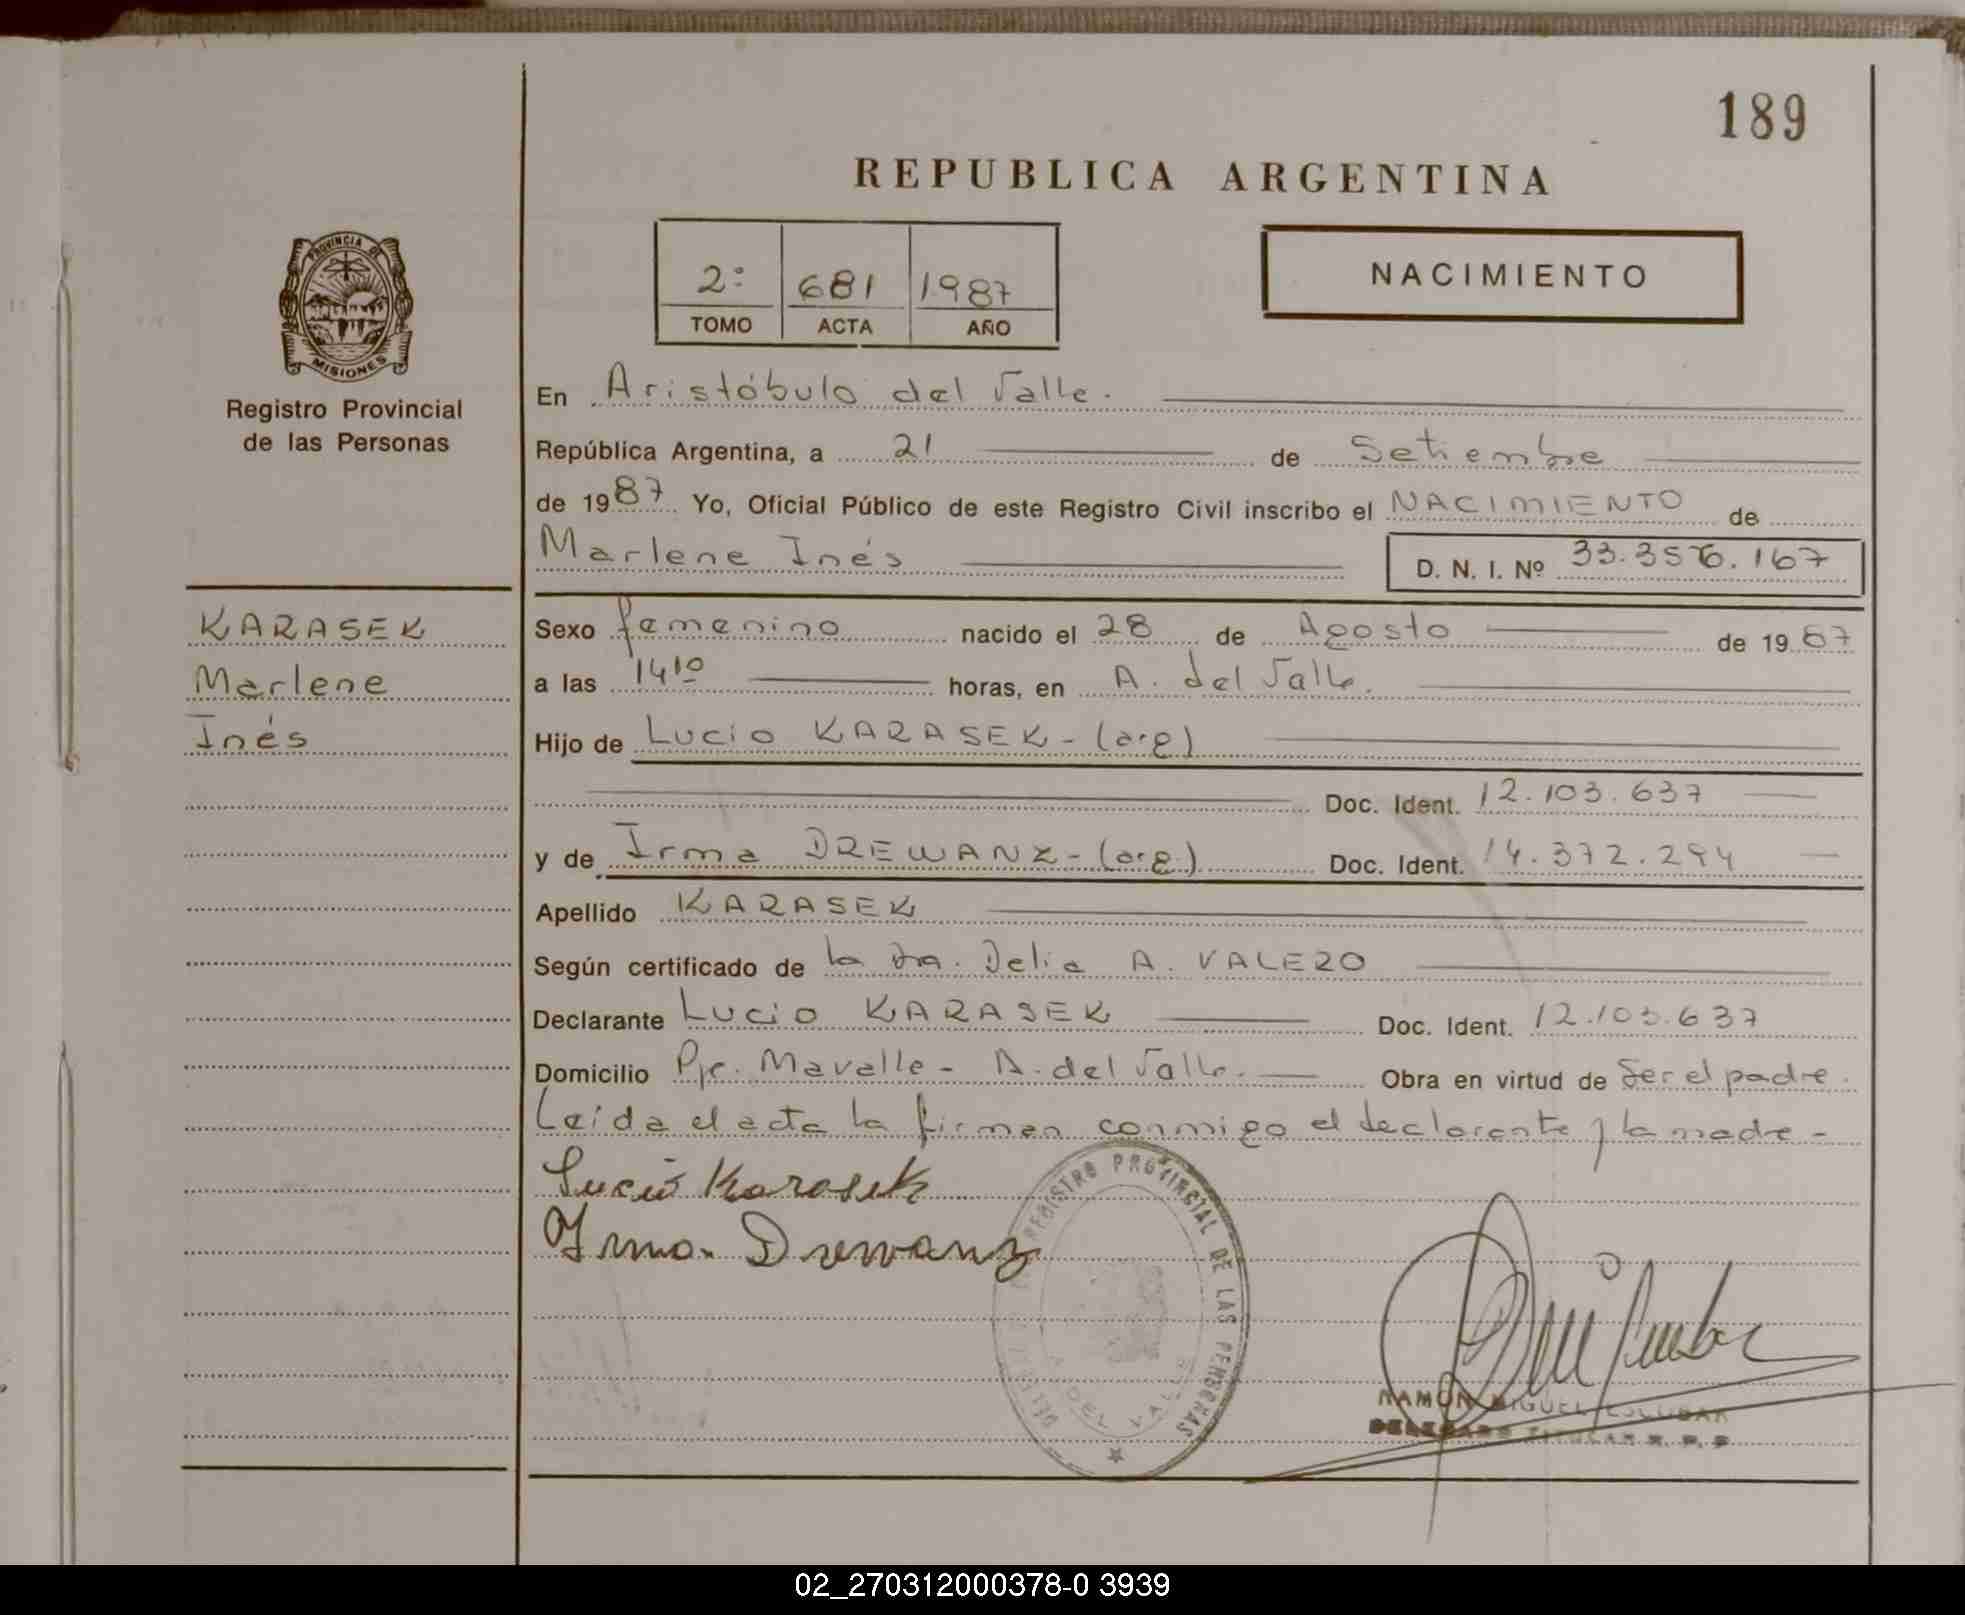 189
REPUBLICA ARGENTINA
2º 681 1987
TOMO ACTA AÑO
NACIMIENTO
PROVINCIA DE
MISIONES
Registro Provincial
de las Personas
KARASEK
Marlene
Inés
En Aristóbulo del Valle.
República Argentina, a 21 de Setiembre
de 1987 Yo, Oficial Público de este Registro Civil inscribo el NACIMIENTO de
Marlene Inés D. N. I. Nº 33.356.167
Sexo femenino nacido el 28 de Agosto de 1987
a las 14 10 horas, en A. del Valle.
Hijo de Lucio KARASEK - (arg)
Doc. Ident. 12.103.637
y de Irma DREWANZ - (arg.) Doc. Ident. 14.372.294
Apellido KARASEK
Según certificado de la Dra. Delia A. VALERO
Declarante Lucio KARASEK Doc. Ident. 12.103.637
Domicilio Pje. Mavalle - A. del Valle. Obra en virtud de Ser el padre.
Leída el acta la firman conmigo el declarante y la madre -
Lucio Karasek
Irma Drewanz
REGISTRO PROVINCIAL DE LAS PERSONAS
A. DEL VALLE
RAMON MIGUEL ESCOBAR
DELEGADO TITULAR R. P. P.
02_270312000378-0 3939